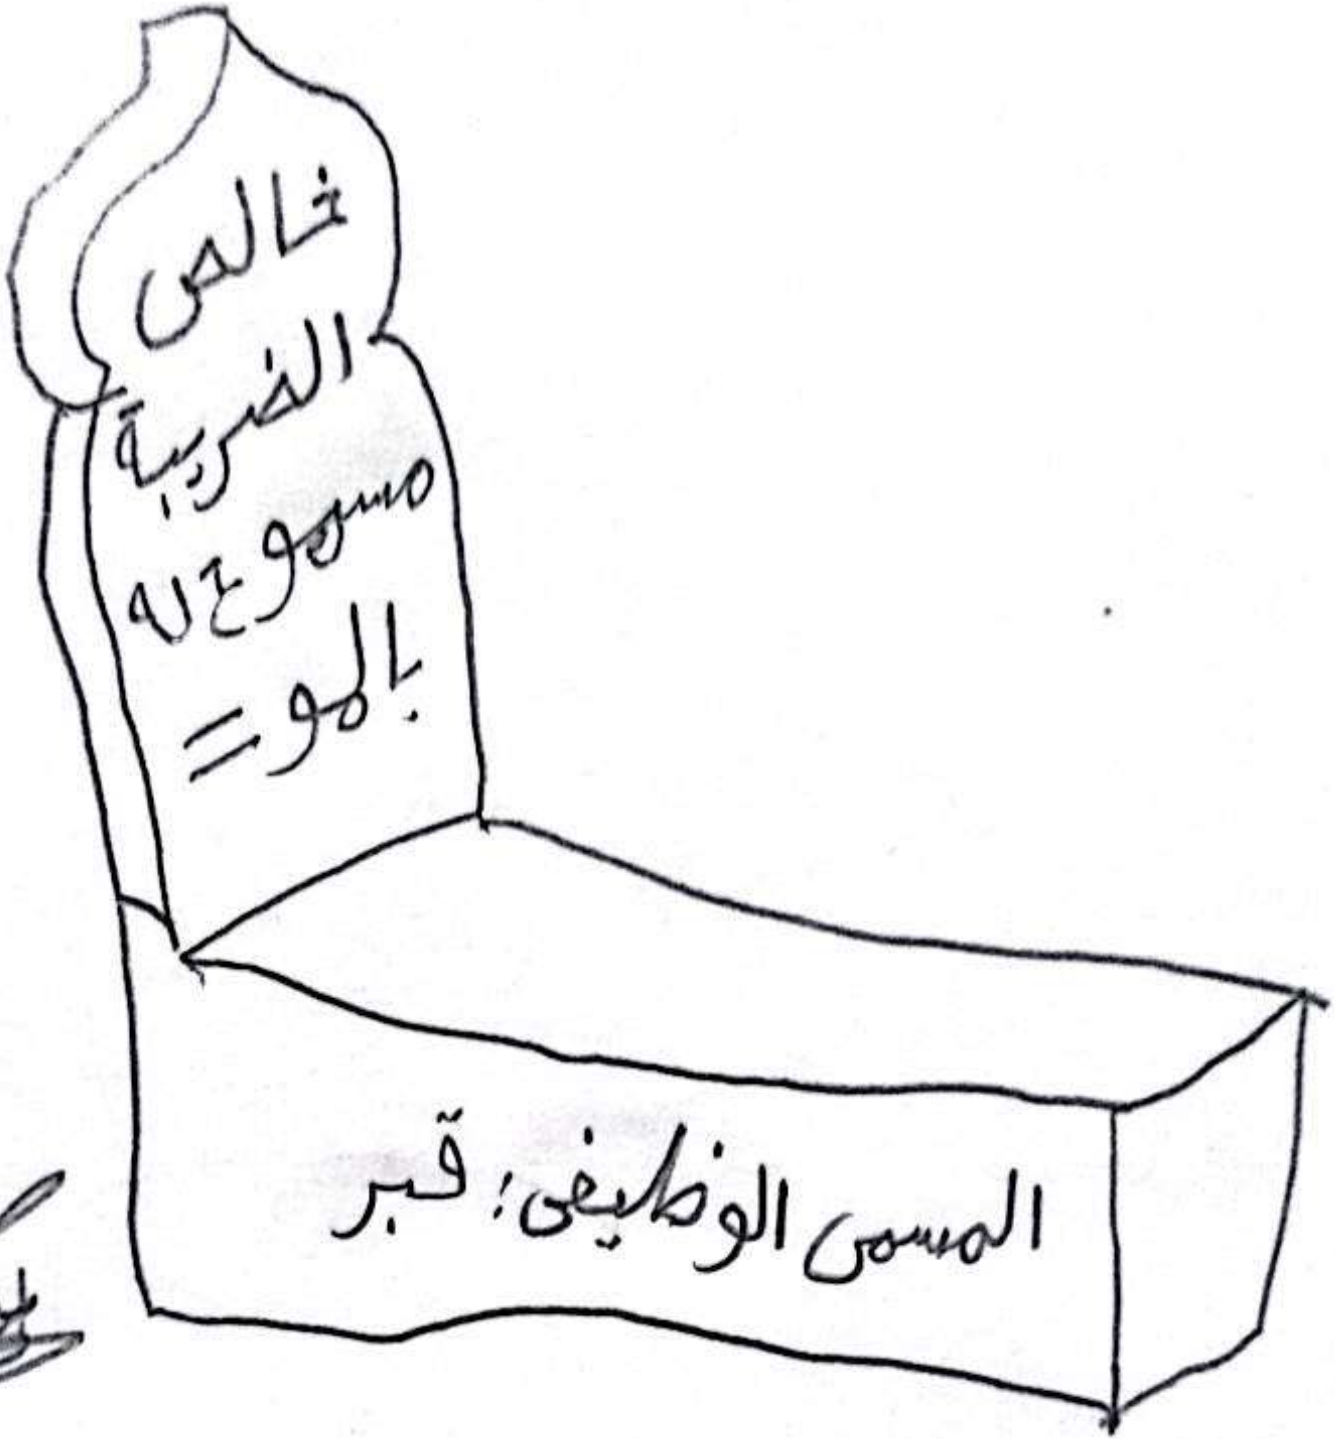 خالص
الضريبة
مسموح له
بالمو =
المسمى الوظيفي: قبر